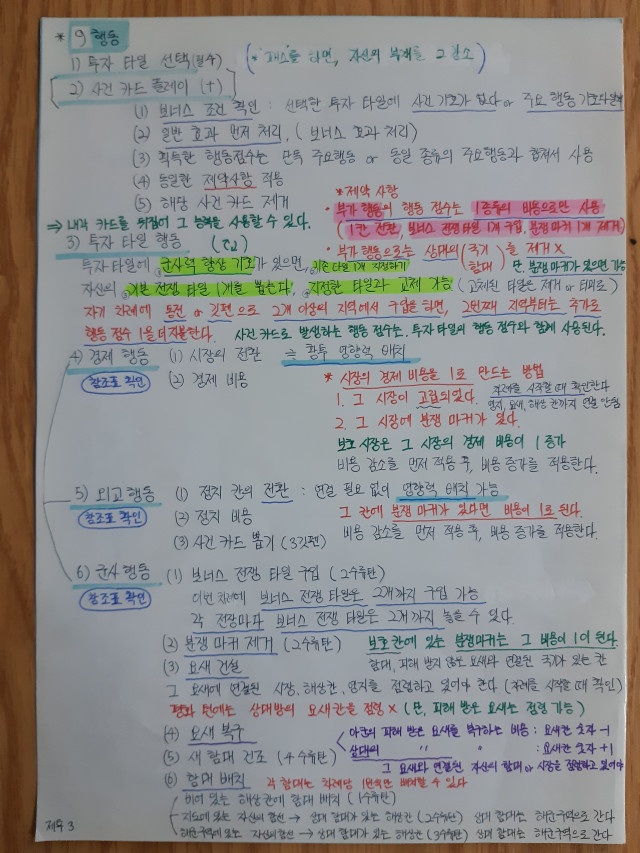 * 9 행동
1) 투자 타일 선택 (필수) (* "패스"를 하면, 자신의 부채를 2 감소)
2) 사건 카드 플레이 (+)
(1) 보너스 조건 확인 : 선택한 투자 타일에 사건 기호가 있다 or 주요 행동 기호가
(2) 일반 효과 먼저 처리, (보너스 효과 처리)
(3) 획득한 행동점수는 만 주요행동 or 동일 종류의 주요행동과 합쳐서 사용
(4) 동일한 제약사항 적용
(5) 해당 사건 카드 제거
* 제약 사항
⇒ 내각 카드를 뒤집어 그 능력을 사용할 수 있다.
• 부가 행동의 행동 점수는 1종류의 비용으로만 사용
(1칸 전환, 보너스 전쟁 타일 1개 구입, 분쟁 마커 1개 제거)
3) 투자 타일 행동
• 부가 행동으로는 상대의 (국기 함대) 를 제거 X 단, 분쟁 마커가 있으면 가능
투자 타일에 군사력 향상 기호가 있으면, 기존 타일 1개 지정하기
자신의 기본 전쟁 타일 1개를 뽑는다, 지정한 타일과 교체 가능 (교체된 타일은 제거 or 테메로)
자기 차례에 동전 or 깃펜으로 2개 이상의 지역에서 구입을 하면, 2번째 지역부터는 추가로
행동 점수 1을 더 지불한다. 사건카드로 발생하는 행동 점수는, 투자 타일의 행동 점수와 함께 사용된다.
4) 경제 행동 (1) 시장의 전환 = 황투 영향력 배치
참조표 확인 (2) 경제 비용
* 시장의 경제 비용을 1로 만드는 방법
1. 그 시장이 고립되었다. 차례를 시작할 때 확인한다
영지, 요새, 해상 칸까지 연결 안됨
2. 그 시장에 분쟁 마커가 있다.
보호 시장은 그 시장의 경제 비용이 1 증가
비용 감소를 먼저 적용 후, 비용 증가를 적용한다.
5) 외교 행동 (1) 정치 칸의 전환 : 연결 필요 없이 영향력 배치 가능
참조표 확인 (2) 정치 비용 그 칸에 분쟁 마커가 있다면 비용이 1로 된다.
(3) 사건 카드 뽑기 (3깃펜) 비용 감소를 먼저 적용 후, 비용 증가를 적용한다.
6) 군사 행동 (1) 보너스 전쟁 타일 구입 (2수류탄)
참조표 확인 이번 차례에 보너스 전쟁 타일은 2개까지 구입 가능
각 전장마다 보너스 전쟁 타일은 2개까지 놓을 수 있다.
(2) 분쟁 마커 제거 (2수류탄) 보호 칸에 있는 분쟁마커는 그 비용이 1이 된다.
(3) 요새 건설 함대, 피해 받지 않은 요새와 연결된 국기가 있는 칸
그 요새에 연결된 시장, 해상칸, 영지를 점령하고 있어야 한다 (차례를 시작할 때 확인)
평화 턴에는 상대방의 요새칸을 점령 X (단, 피해 받은 요새는 점령 가능)
(4) 요새 복구 아군의 피해 받은 요새를 복구하는 비용 : 요새칸 숫자 -1
상대의 〃 〃 : 요새칸 숫자 +1
(5) 새 함대 건조 (4수류탄) 그 요새와 연결된 자신의 함대 or 시장을 점령하고 있어야
(6) 함대 배치 각 함대는 차례당 1번씩만 배치할 수 있다
비어 있는 해상칸에 함대 배치 (1수류탄)
지도에 있는 자신의 함선 → 상대 함대가 있는 해상칸 (2수류탄) 상대 함대는 해군구역으로 간다
해군구역에 있는 자신의 함선 → 상대 함대가 있는 해상칸 (3수류탄) 상대 함대는 해군구역으로 간다
제목 3